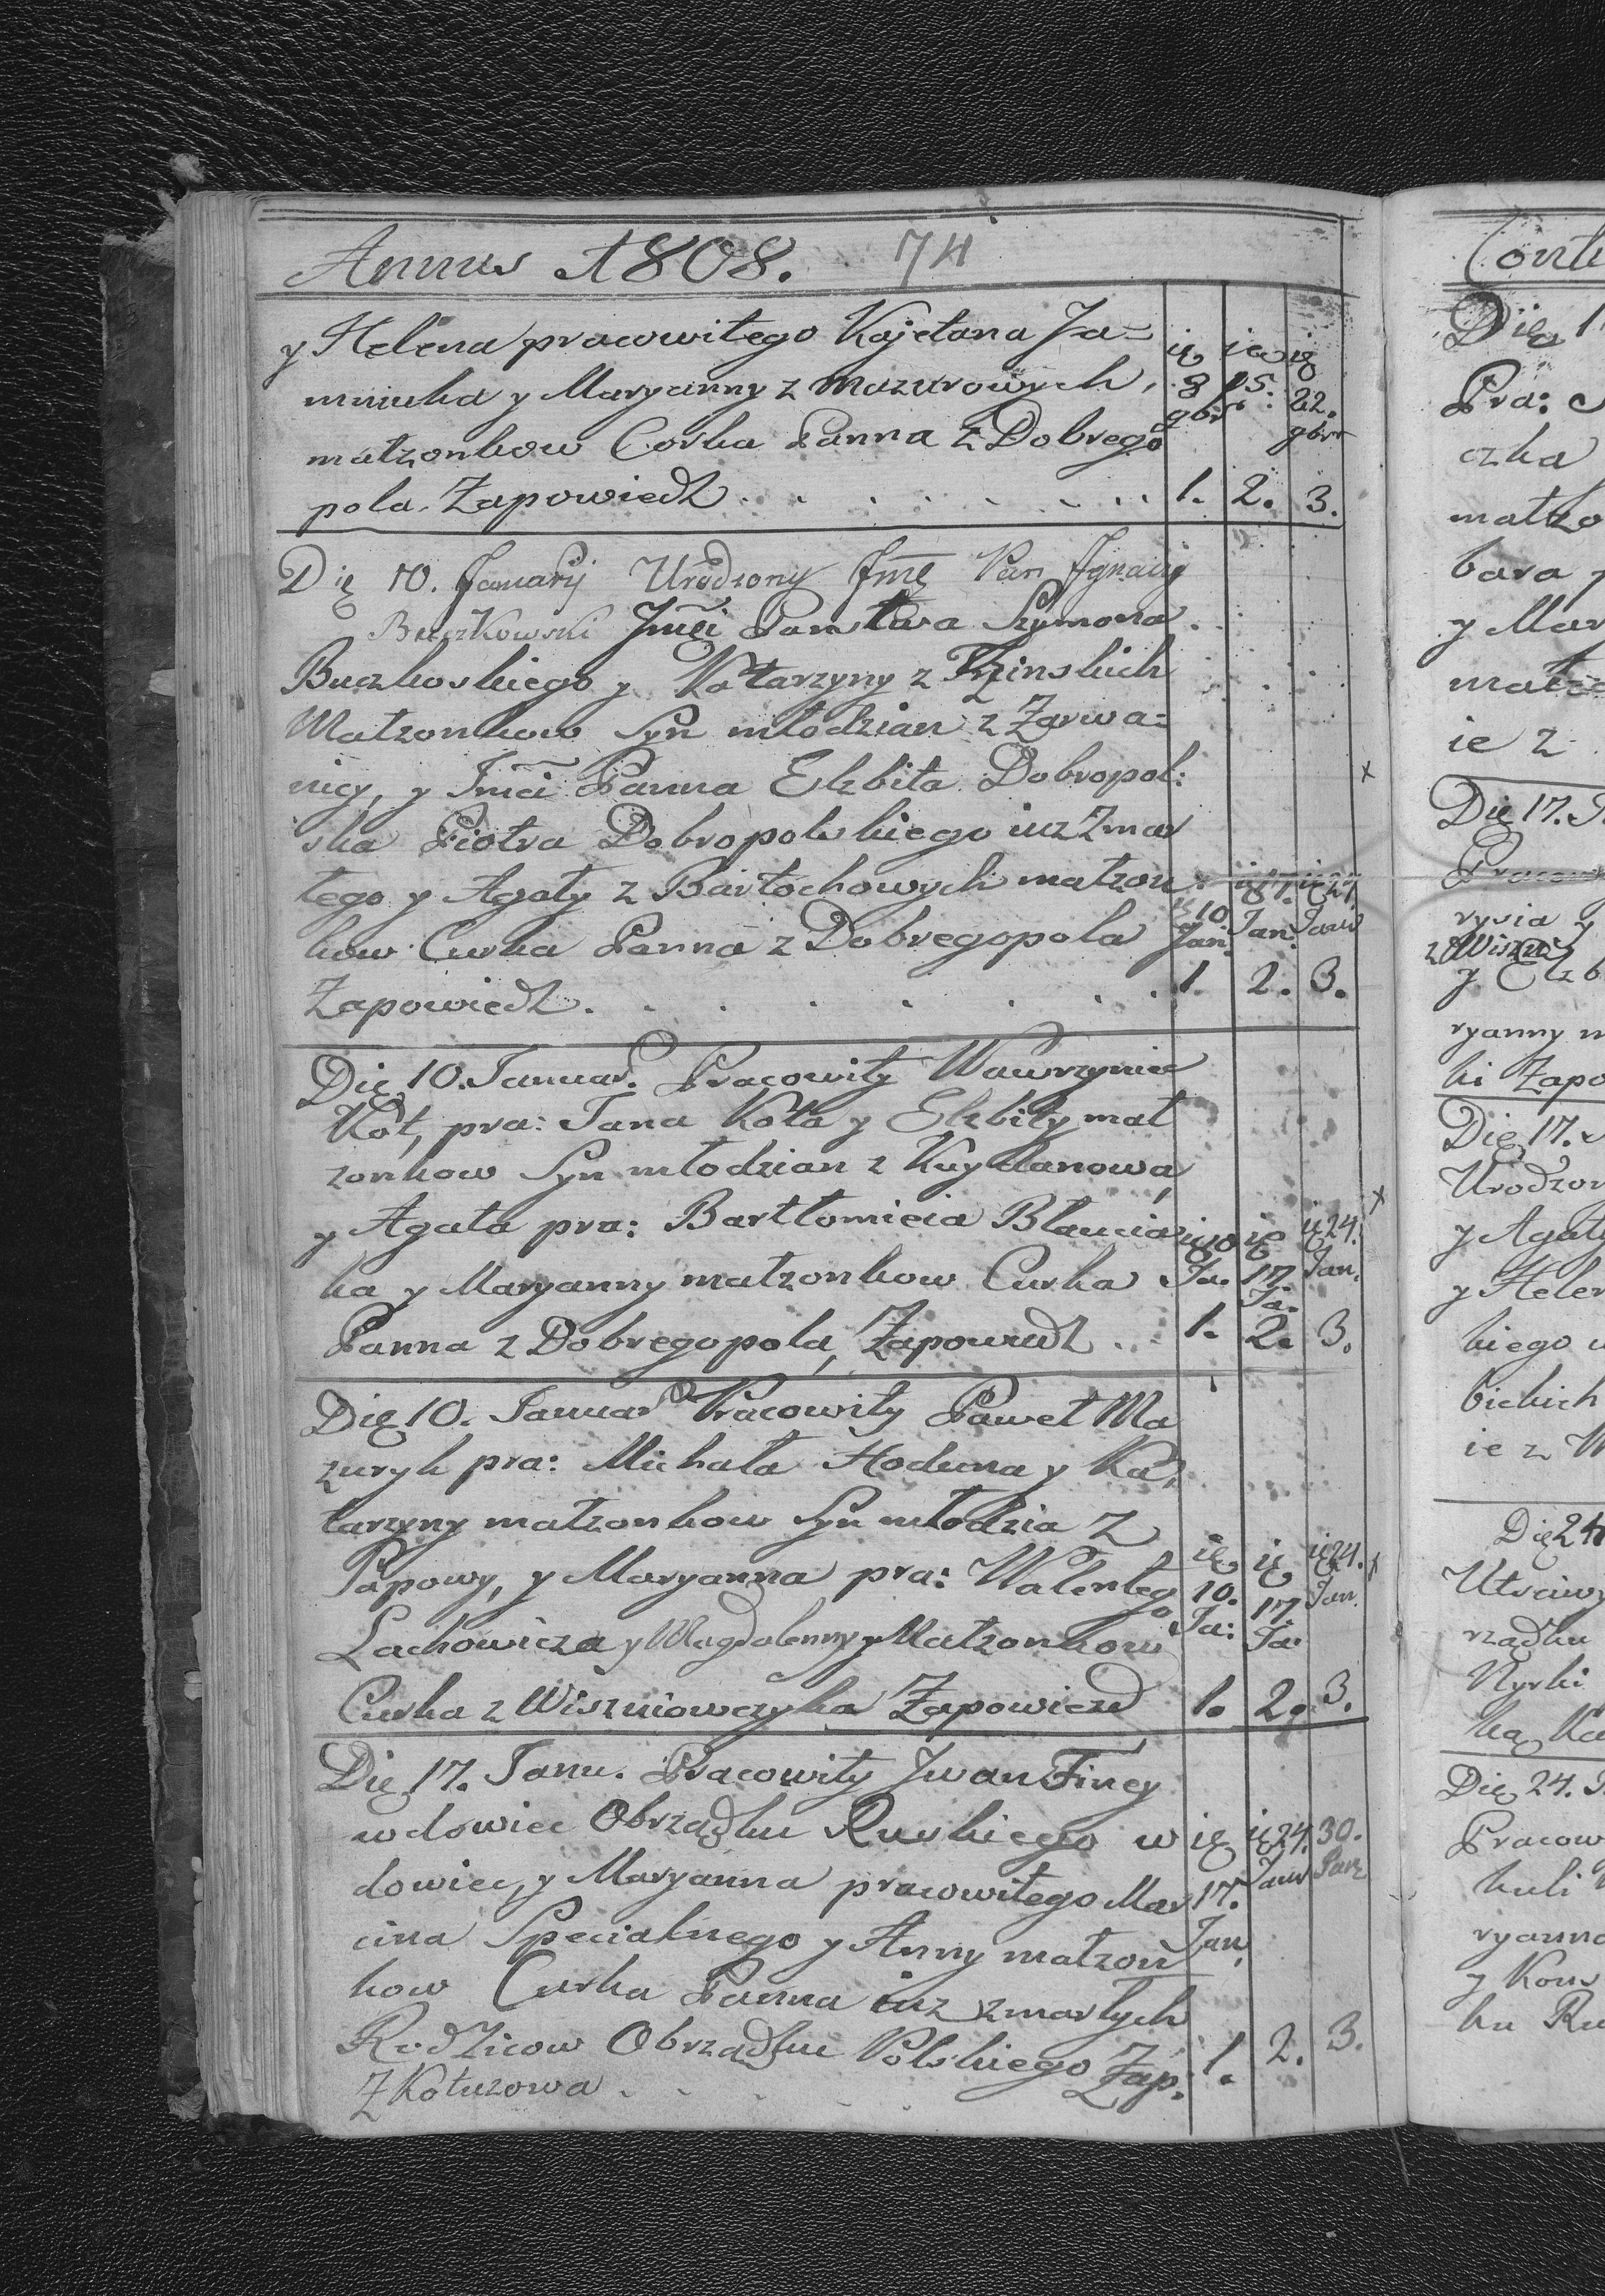 Annus 1808. 74
y Helena pracowitego Kajetana Ja=
mniuka y Maryanny z Mazurowych,
małzonkow Corka Panna z Dobrego
pola. Zapowiedz . . . . . . . 1. 2. 3.
Dię 10. Januarij Urodzony Jmę Pan Jgnacy
Buczkowski Jmęi Panstwa Szymona
Buczkoskiego y Katarzyny z
Małzonkow Syn młodzian z Zarwa=
nicy, y Jmći Panna Elzbita Dobropol:
ska Piotra Dobropolskiego iuz Zmar
łego y Agaty z Bartochowych małzon
kow Curka Panna z Dobregopola
10 Jan. 17. Jan. 27 Janu
Zapowiedz . . . . . . . 1. 2. 3.
Dię 10. Januar. Pracowity Wawrzyniec
Kot, pra: Jana Kota y Elzbity mał
zonkow Syn młodzian z Kuydanowa
y Agata pra: Bartłomieia
ka y Maryanny małzonkow Curka
ię 10 Ja. ię 17 Ja. ię 24. Jan.
Panna z Dobregopola, Zapowiedz . . 1. 2. 3.
Dię 10. Januar Pracowity Paweł Ma
zuryk pra: Michała Hoduna y Ka
tarzyny małzonkow Syn młodzia z
Papowy, y Maryanna pra: Walenteg
ię 10. Ja: ię 17. Ja: ię 24. Jan.
Lachowicza y Magdalenny Małzonkow
Curka z Wiszniowczyka Zapowiezd 1. 2. 3.
Dię 17. Janu. Pracowity Jwan Finey
wdowiec Obrządku Ruskiego w
dowiec, y Maryanna pracowitego Mar
ię 17. Jan. ię 24. Janu 30.
cina Specialnego y Anny małzon
kow Curka Panna iuz zmarłych
Rodzicow Obrządku Polskiego Zap: 1. 2. 3.
Z Kotuzowa . . . .
Pra:
czka
matzo
bara
y Mar
ie z
Dię 17. J.
rysia y
y Elzb
ryanny m
ki Zapo
Dię 17.
Urodzon
y Agaty
y Helen
kiego
bickich
ie z W
Dię 24
rządku
Dię 24. J
Pracow
kuli
ryanna
y Kons
ku Ru